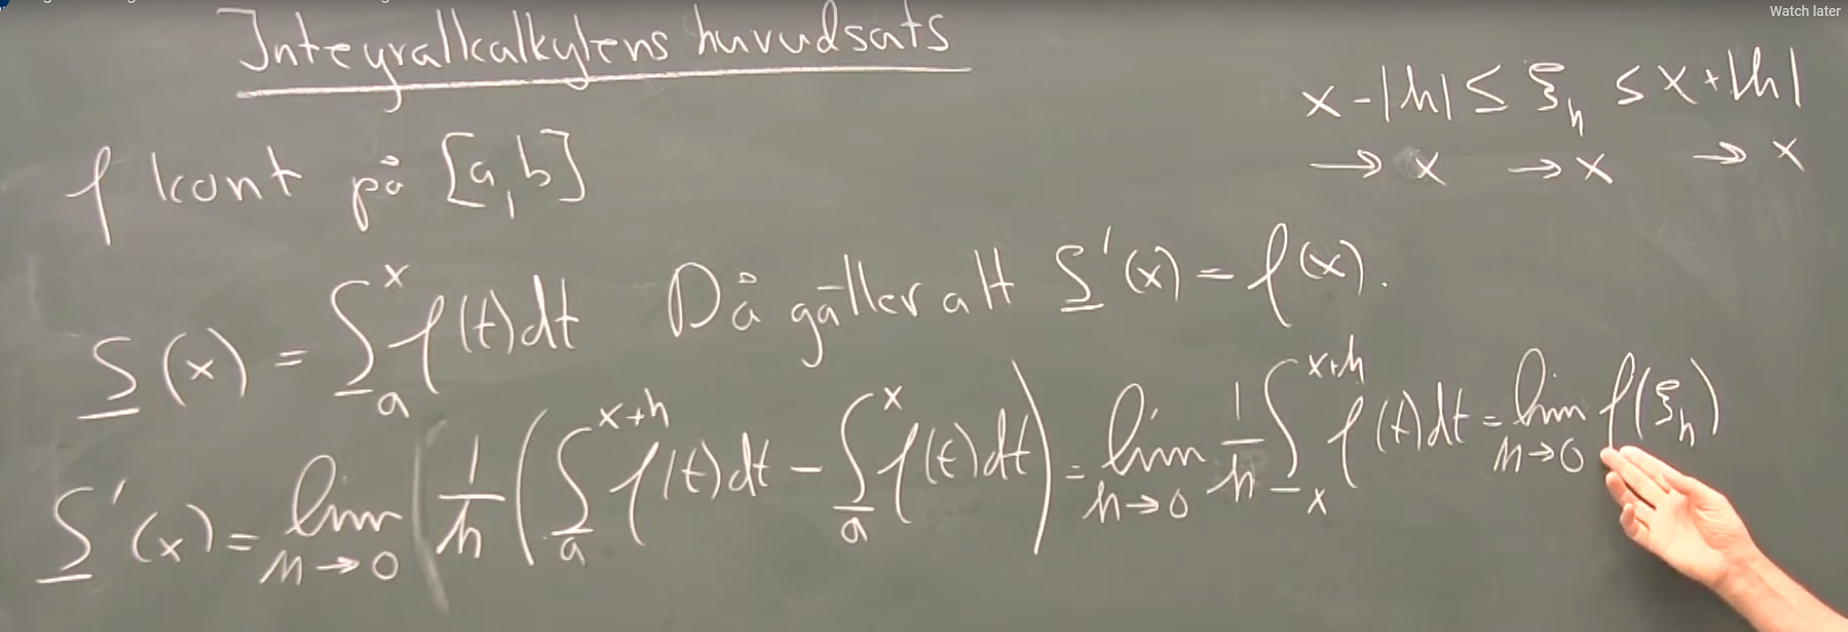 Watch later
Integralkalkylens huvudsats
x-|h| ≤ ξ_h ≤ x+|h|
→ x → x → x
f kont på [a,b]
S(x) = ∫_a^x f(t)dt Då gäller att S'(x) = f(x).
S'(x) = lim_{h→0} ( 1/h ( ∫_a^{x+h} f(t)dt - ∫_a^x f(t)dt ) = lim_{h→0} 1/h ∫_x^{x+h} f(t)dt = lim_{h→0} f(ξ_h)